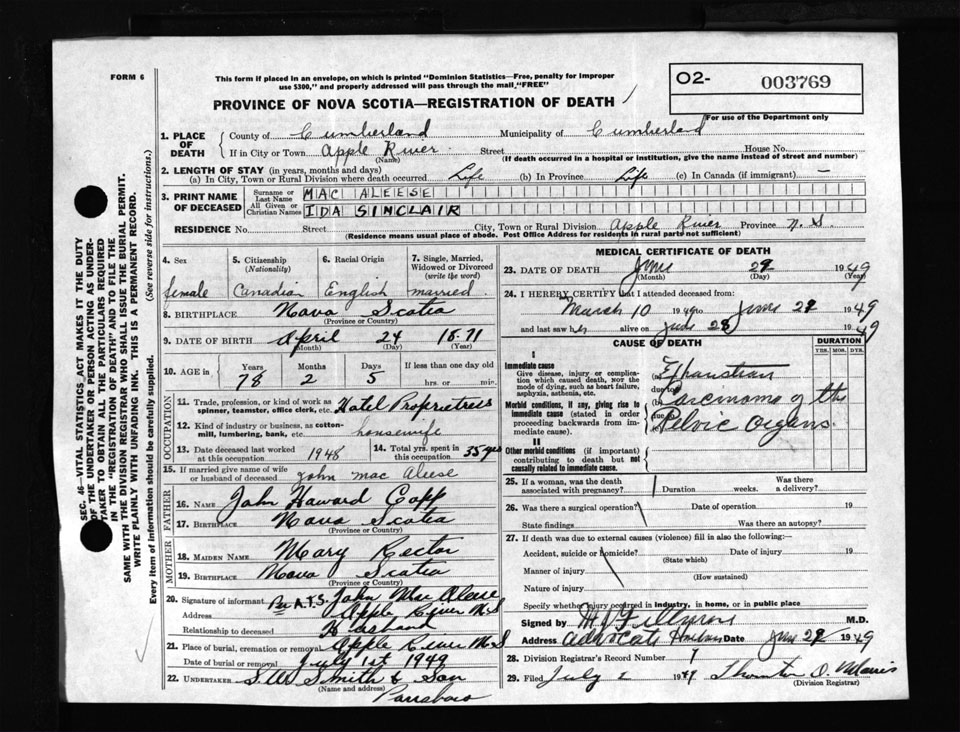 FORM 6
This form if placed in an envelope, on which is printed "Dominion Statistics—Free, penalty for improper
use $300," and properly addressed will pass through the mail "FREE"
O2- 003769
PROVINCE OF NOVA SCOTIA—REGISTRATION OF DEATH
For use of the Department only
1. PLACE OF DEATH
County of Cumberland Municipality of Cumberland
If in City or Town Apple River Street House No.
(Name) (If death occurred in a hospital or institution, give the name instead of street and number)
2. LENGTH OF STAY (in years, months and days)
(a) In City, Town or Rural Division where death occurred Life (b) In Province Life (c) In Canada (if immigrant) —
3. PRINT NAME OF DECEASED
Surname or Last Name MAC ALEESE
All Given or Christian Names IDA SINCLAIR
RESIDENCE No. Street City, Town or Rural Division Apple River Province N.S.
(Residence means usual place of abode. Post Office Address for residents in rural parts not sufficient)
4. Sex 5. Citizenship (Nationality) 6. Racial Origin 7. Single, Married, Widowed or Divorced (write the word)
female Canadian English married
8. BIRTHPLACE Nova Scotia
(Province or Country)
9. DATE OF BIRTH April 24 1871
(Month) (Day) (Year)
10. AGE in Years Months Days If less than one day old
78 2 5 hrs. or min.
OCCUPATION
11. Trade, profession, or kind of work as spinner, teamster, office clerk, etc. Hotel Proprietress
12. Kind of industry or business, as cotton-mill, lumbering, bank, etc. housewife
13. Date deceased last worked at this occupation 1948 14. Total yrs. spent in this occupation 55 yrs
15. If married give name of wife or husband of deceased John Mac Aleese
FATHER
16. NAME John Howard Copp
17. BIRTHPLACE Nova Scotia
(Province or Country)
MOTHER
18. MAIDEN NAME Mary Rector
19. BIRTHPLACE Nova Scotia
(Province or Country)
20. Signature of informant Per A.T.S. John Mac Aleese
Address Apple River N.S
Relationship to deceased Husband
21. Place of burial, cremation or removal Apple River N.S
Date of burial or removal July 1st 1949
22. UNDERTAKER S.W. Smith & Son
(Name and address) Parrsboro
MEDICAL CERTIFICATE OF DEATH
23. DATE OF DEATH June 29 1949
(Month) (Day)
24. I HEREBY CERTIFY that I attended deceased from:
March 10 1949 to June 29 1949
and last saw her alive on June 28 1949
CAUSE OF DEATH DURATION
YRS. MOS. DYS.
I
Immediate cause
Give disease, injury or complication which caused death, not the mode of dying, such as heart failure, asphyxia, asthenia, etc.
Morbid conditions, if any, giving rise to immediate cause (stated in order proceeding backwards from immediate cause).
II
Other morbid conditions (if important) contributing to death but not causally related to immediate cause.
Exhaustion
due to Carcinoma of the
due to Pelvic organs.
25. If a woman, was the death associated with pregnancy? Duration weeks. Was there a delivery?
26. Was there a surgical operation? Date of operation 19
State findings Was there an autopsy?
27. If death was due to external causes (violence) fill in also the following:—
Accident, suicide or homicide? Date of injury 19
(State which)
Manner of injury
(How sustained)
Nature of injury
Specify whether injury occurred in industry, in home, or in public place
Signed by M.D.
Address Advocate Harbour Date June 29 1949
28. Division Registrar's Record Number 7
29. Filed July 2 1949 Thornton O. Morris
(Division Registrar)
SEC. 46—VITAL STATISTICS ACT MAKES IT THE DUTY
OF THE UNDERTAKER OR PERSON ACTING AS UNDER-
TAKER TO OBTAIN ALL THE PARTICULARS REQUIRED
IN THE "REGISTRATION OF DEATH" AND TO FILE THE
SAME WITH THE DIVISION REGISTRAR WHO SHALL ISSUE THE BURIAL PERMIT.
WRITE PLAINLY WITH UNFADING INK. THIS IS A PERMANENT RECORD.
Every item of information should be carefully supplied. (See reverse side for instructions.)